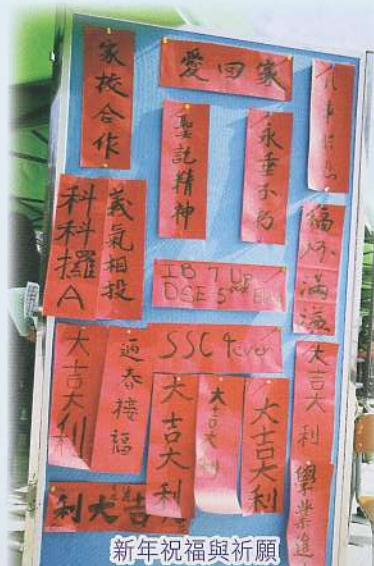 家校合作
愛回家
聖記精神
永垂不朽
福杯滿溢
義氣相投
科科攞A
IB 7 Up
DSE 5
SSC 4ever
大吉大利
迎春接福
大吉大利
大吉大利
大吉大利
大吉大利
學業進
大吉利
新年祝福與祈願